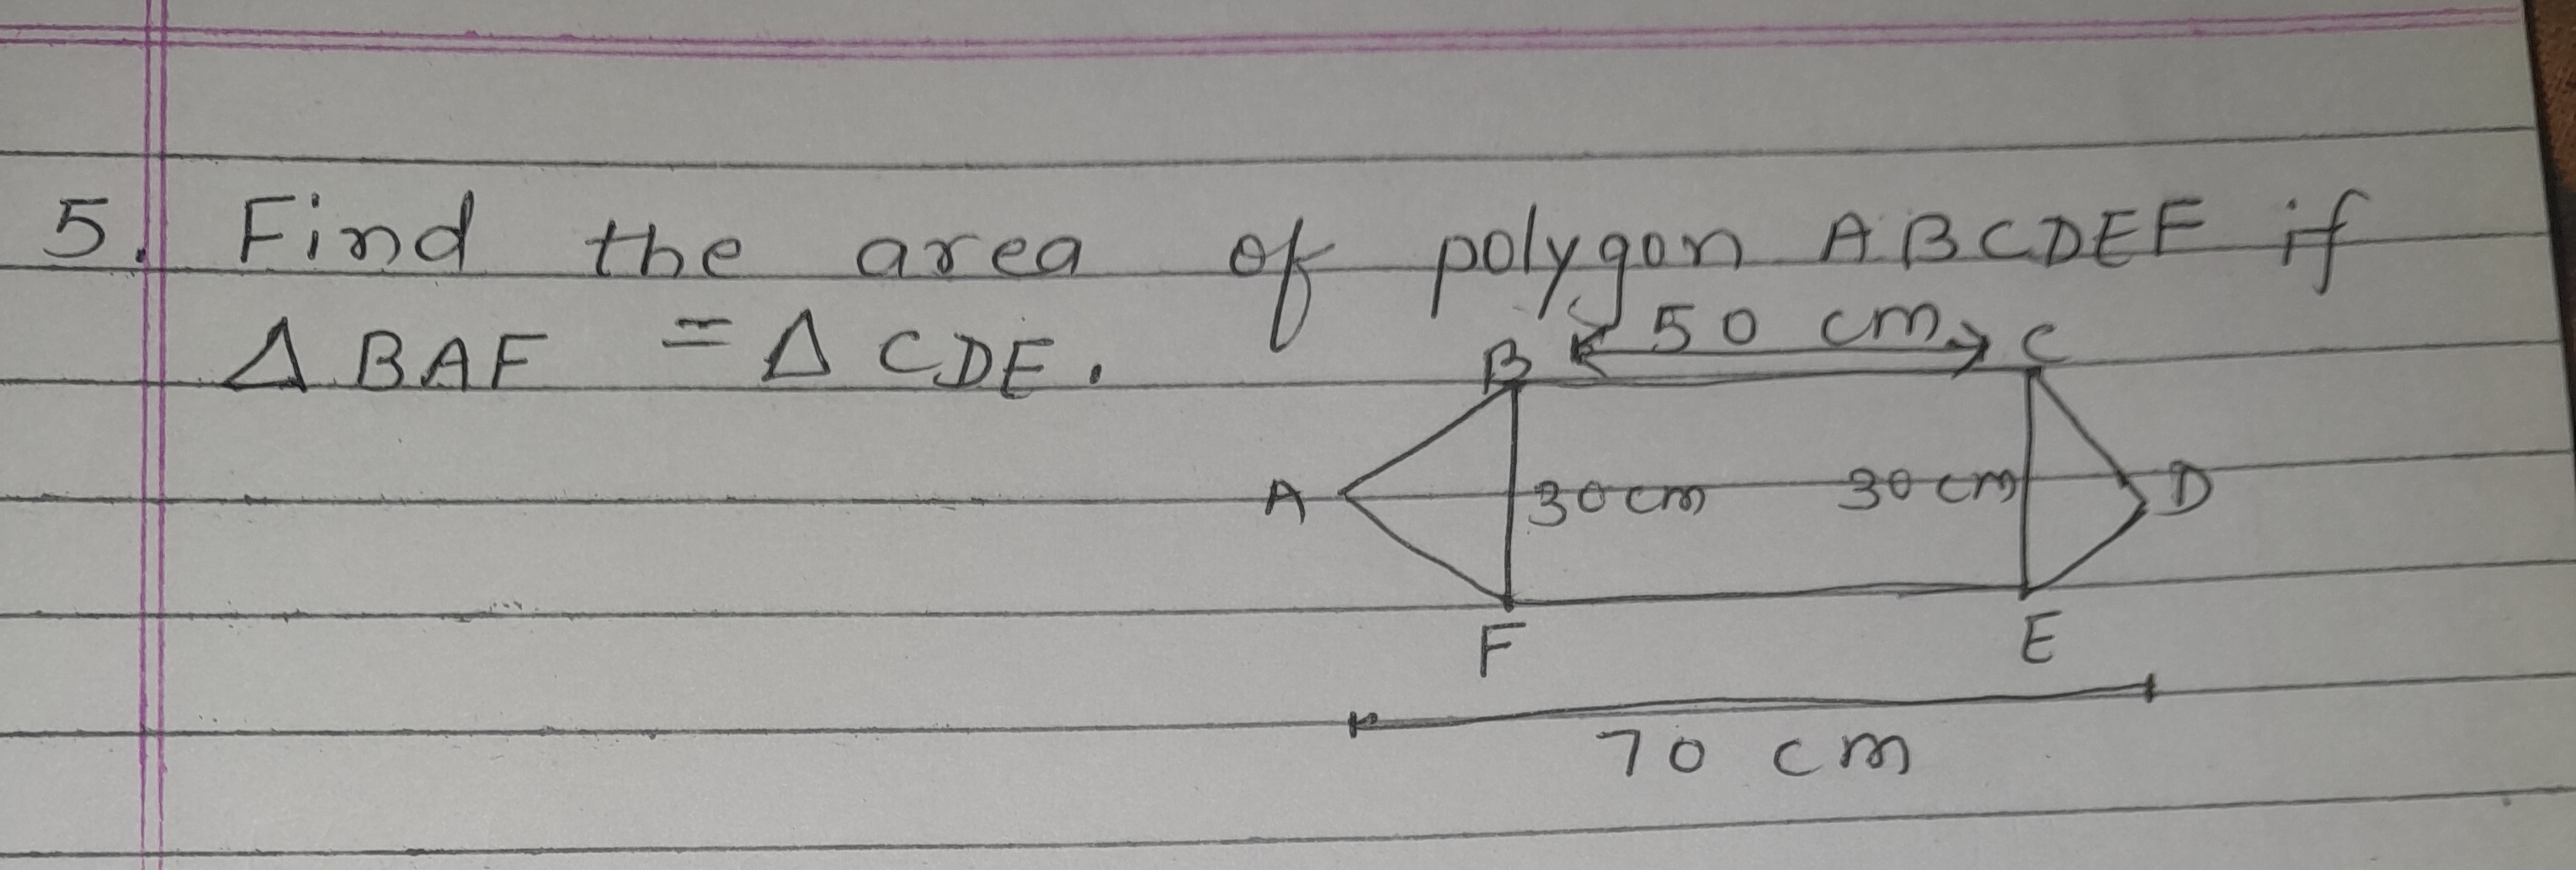 5. Find the area of polygon ABCDEF if
Δ BAF = Δ CDE.
50 cm
B C
A 30 cm 30 cm D
F E
70 cm